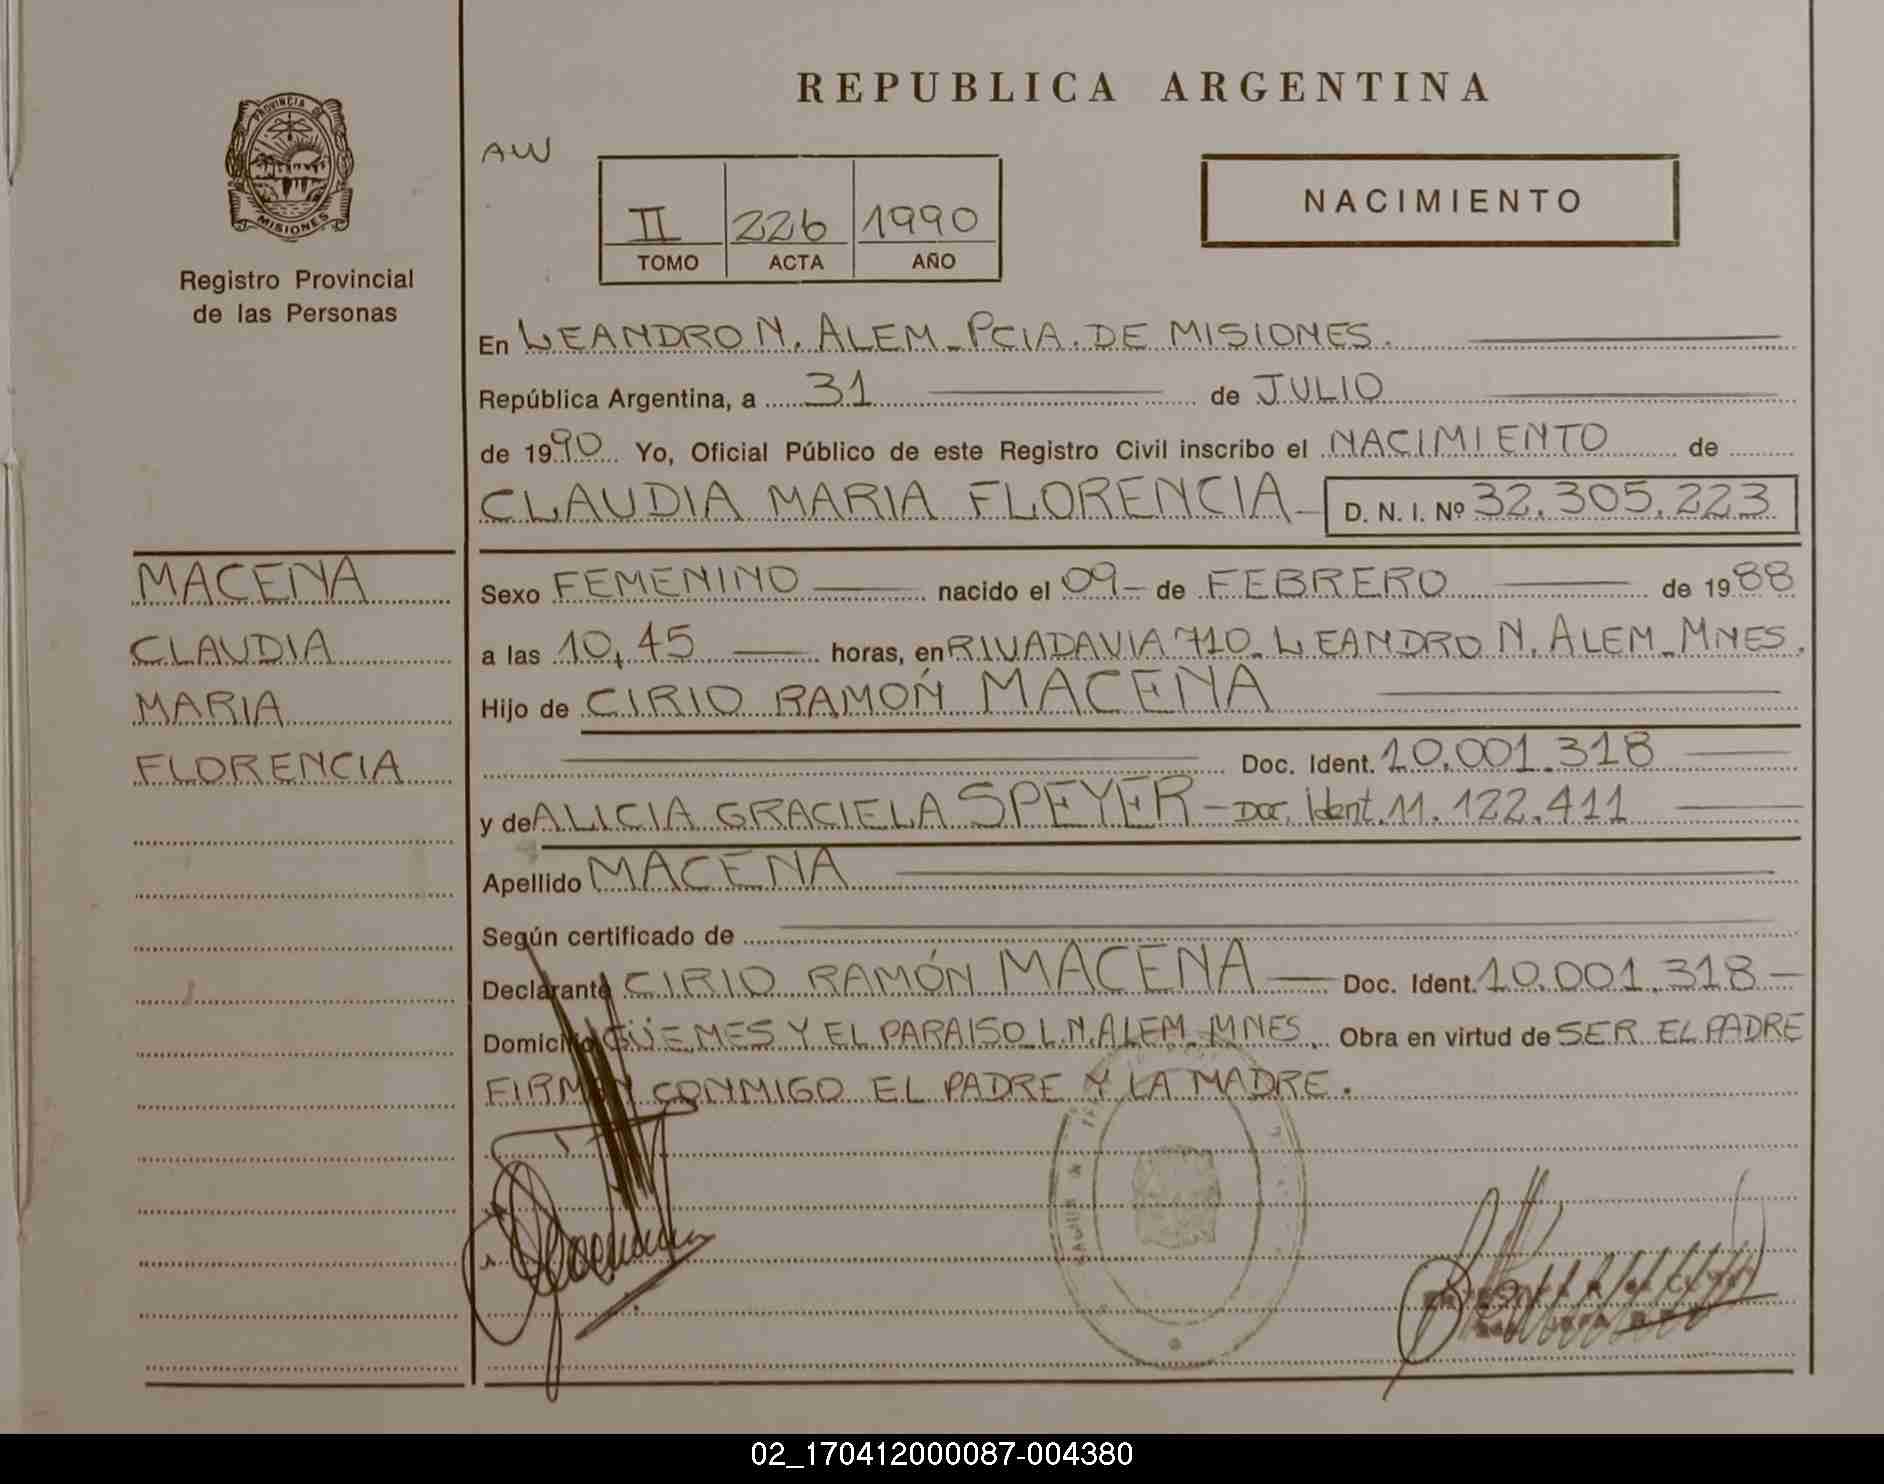 REPUBLICA ARGENTINA
PROVINCIA DE
MISIONES
Registro Provincial
de las Personas
AW
II 226 1990
TOMO ACTA AÑO
NACIMIENTO
En LEANDRO N. ALEM_PCIA. DE MISIONES.
República Argentina, a 31 de JULIO
de 1990 Yo, Oficial Público de este Registro Civil inscribo el NACIMIENTO de
CLAUDIA MARIA FLORENCIA- D. N. I. Nº 32.305.223
MACENA
CLAUDIA
MARIA
FLORENCIA
Sexo FEMENINO nacido el 09- de FEBRERO de 1988
a las 10,45 horas, en RIVADAVIA 710_ LEANDRO N. ALEM_MNES.
Hijo de CIRIO RAMÓN MACENA
Doc. Ident. 10.001.318
y de ALICIA GRACIELA SPEYER - Doc. Ident. 11.122.411
Apellido MACENA
Según certificado de
Declarante CIRIO RAMÓN MACENA Doc. Ident. 10.001.318-
Domicilio GÜEMES Y EL PARAISO_L.N.ALEM_MNES. Obra en virtud de SER EL PADRE
FIRMAN CONMIGO EL PADRE Y LA MADRE.
02_170412000087-004380